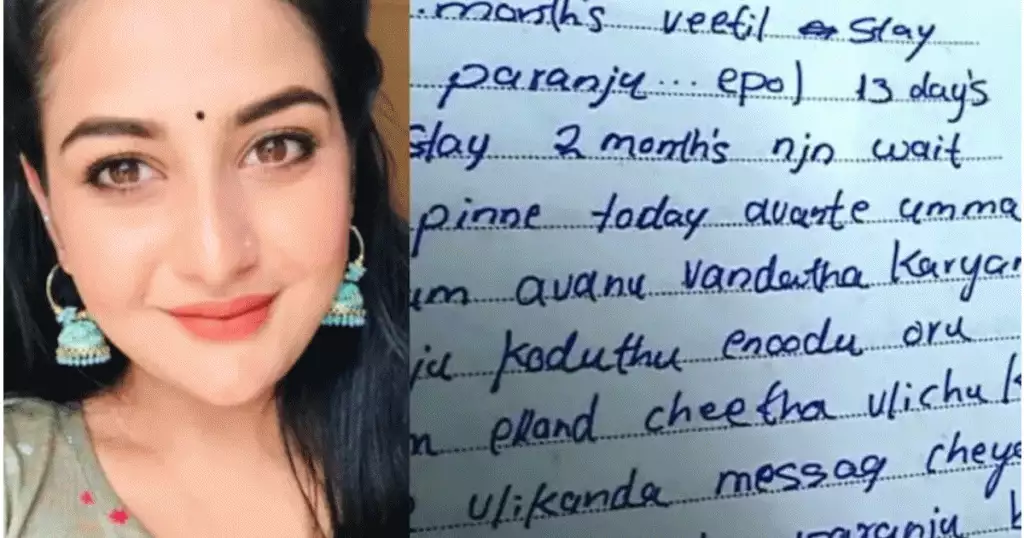 months veetil stay
paranju... epol 13 day's
stay 2 month's njn wait
pinne today avante umma
um avanu vandatha karyam
ju koduthu enoodu oru
n elland cheetha vlichu k
vlikanda messag cheye
paranju b